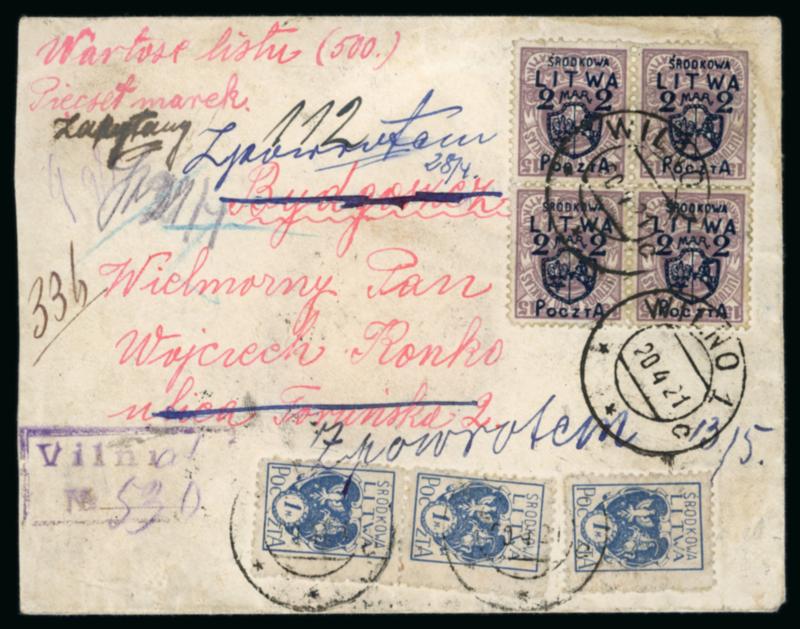 Wartosc listu (500.)
Pięcset marek.
112
Zpowrotem
28/4.
Bydgoszcz
336
Wielmorny Pan
Wojciech Ronko
ulica Toruńska 2.
Zpowrotem 13/5.
Vilna
№ 530
ŚRODKOWA
LITWA
2 MAR. 2
POCZTA
ŚRODKOWA
LITWA
2 MAR. 2
POCZTA
ŚRODKOWA
LITWA
2 MAR. 2
POCZTA
ŚRODKOWA
LITWA
2 MAR. 2
POCZTA
15
15
WILNO 1
20 4 21
c
ŚRODKOWA
LITWA
1 M
POCZTA
ŚRODKOWA
LITWA
1 M
POCZTA
ŚRODKOWA
LITWA
1 M
POCZTA